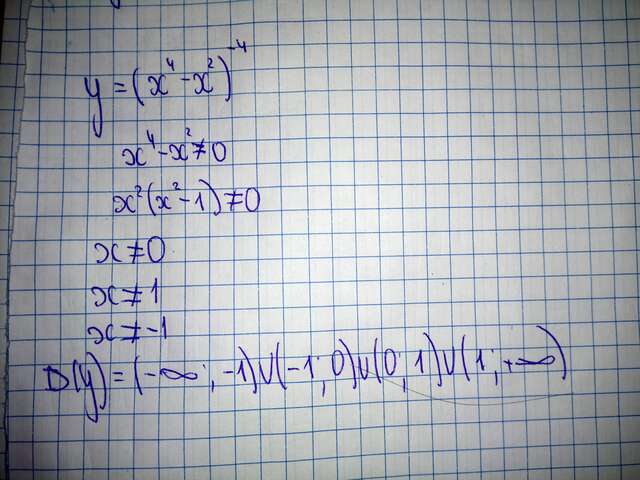 y = (x⁴-x²)⁻⁴
x⁴-x²≠0
x²(x²-1)≠0
x≠0
x≠1
x≠-1
D(y) = (-∞; -1)U(-1; 0)U(0; 1)U(1; +∞)